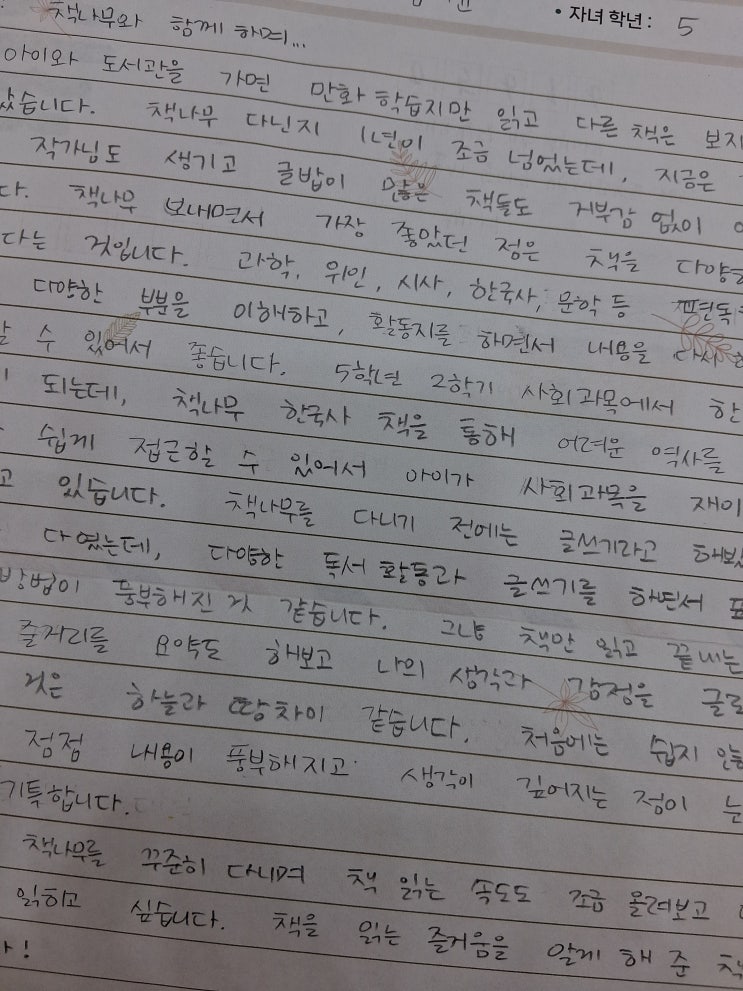 • 자녀 학년 : 5
책나무와 함께 하며...
아이와 도서관을 가면 만화 학습지만 읽고 다른 책은 보지
았습니다. 책나무 다닌지 1년이 조금 넘었는데, 지금은
작가님도 생기고 글밥이 많은 책들도 거부감 없이
다. 책나무 보내면서 가장 좋았던 점은 책을 다양
다는 것입니다. 과학, 위인, 시사, 한국사, 문학 등 편독
다양한 부분을 이해하고, 활동지를 하면서 내용을 다시
할 수 있어서 좋습니다. 5학년 2학기 사회과목에서 한
되는데, 책나무 한국사 책을 통해 어려운 역사를
쉽게 접근할 수 있어서 아이가 사회과목을 재미
고 있습니다. 책나무를 다니기 전에는 글쓰기라고 해봤
다였는데, 다양한 독서 활동과 글쓰기를 하면서 표
방법이 풍부해진 것 같습니다. 그냥 책만 읽고 끝내는
줄거리를 요약도 해보고 나의 생각과 감정을 글로
것은 하늘과 땅 차이 같습니다. 처음에는 쉽지 않
점점 내용이 풍부해지고 생각이 깊어지는 점이 눈
기특합니다.
책나무를 꾸준히 다니며 책 읽는 속도도 조금 올려보고
읽히고 싶습니다. 책을 읽는 즐거움을 알게 해 준 책
!